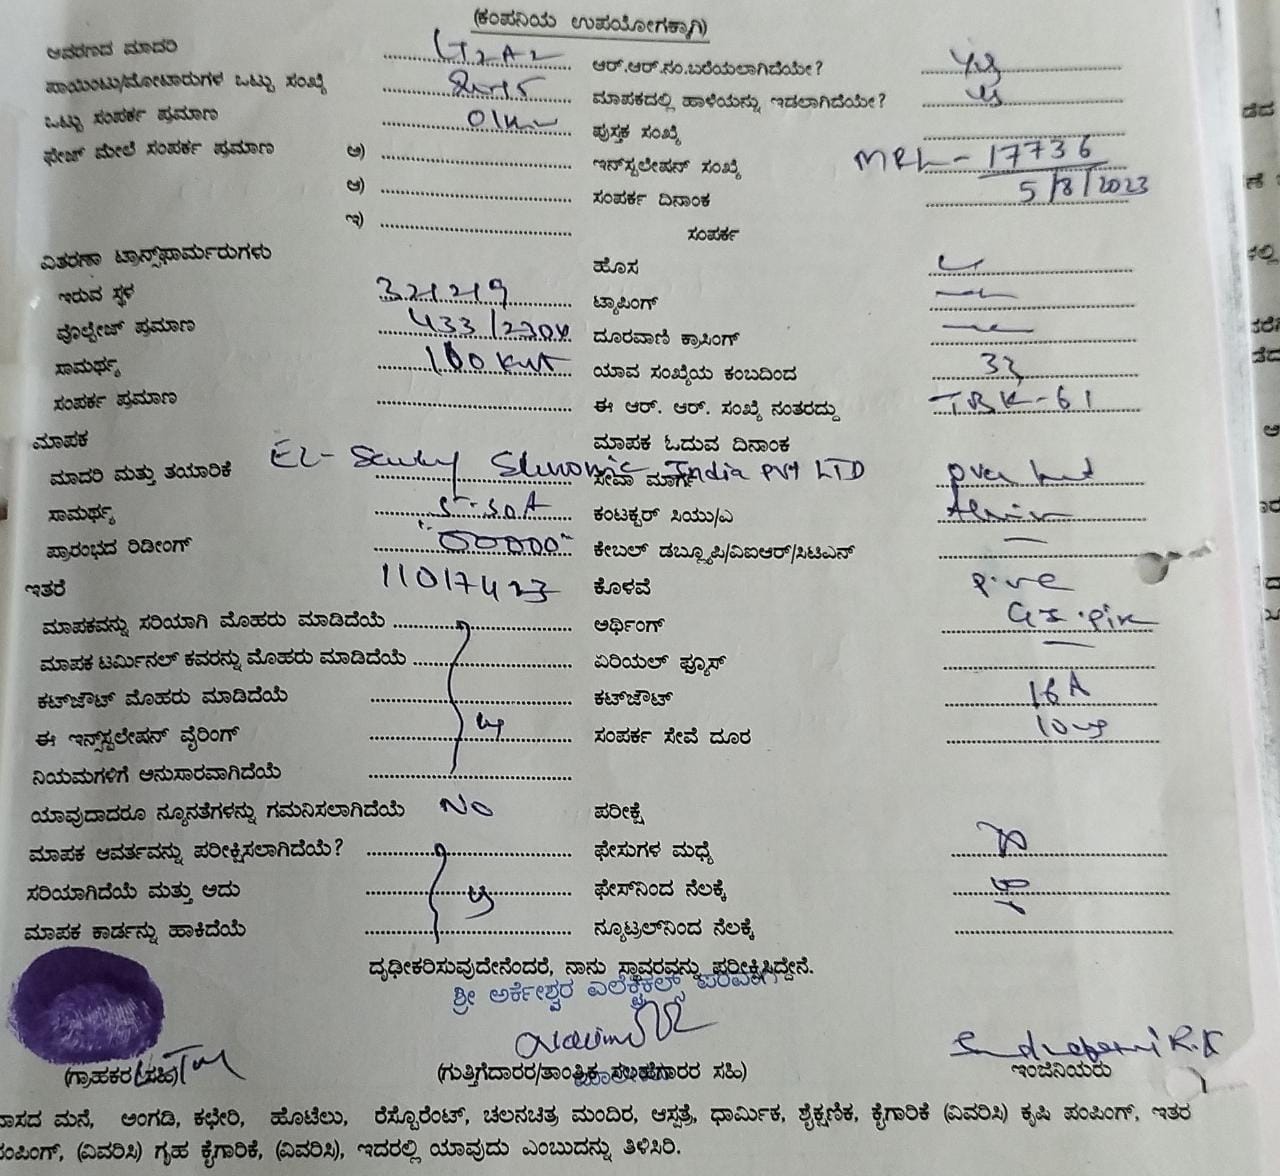 (ಕಂಪನಿಯ ಉಪಯೋಗಕ್ಕಾಗಿ)
ಆವರಣದ ಮಾದರಿ LT2A2 ಆರ್.ಆರ್.ನಂ.ಬರೆಯಲಾಗಿದೆಯೇ? Yes
ಪಾಯಿಂಟು/ಮೋಟಾರುಗಳ ಒಟ್ಟು ಸಂಖ್ಯೆ ಮಾಪಕದಲ್ಲಿ ಹಾಳೆಯನ್ನು ಇಡಲಾಗಿದೆಯೇ?
ಒಟ್ಟು ಸಂಪರ್ಕ ಪ್ರಮಾಣ ಪುಸ್ತಕ ಸಂಖ್ಯೆ
ಫೇಜ್ ಮೇಲೆ ಸಂಪರ್ಕ ಪ್ರಮಾಣ ಅ) ಇನ್‌ಸ್ಟಲೇಷನ್ ಸಂಖ್ಯೆ MRL-17736
ಆ) ಸಂಪರ್ಕ ದಿನಾಂಕ 5/8/2023
ಇ) ಸಂಪರ್ಕ
ವಿತರಣಾ ಟ್ರಾನ್ಸ್‌ಫಾರ್ಮರುಗಳು ಹೊಸ
ಇರುವ ಸ್ಥಳ ಟ್ಯಾಪಿಂಗ್
ವೊಲ್ಟೇಜ್ ಪ್ರಮಾಣ 433/230V ದೂರವಾಣಿ ಕ್ರಾಸಿಂಗ್
ಸಾಮರ್ಥ್ಯ 100 ಯಾವ ಸಂಖ್ಯೆಯ ಕಂಬದಿಂದ
ಸಂಪರ್ಕ ಪ್ರಮಾಣ ಈ ಆರ್. ಆರ್. ಸಂಖ್ಯೆ ನಂತರದ್ದು TBK-61
ಮಾಪಕ ಮಾಪಕ ಓದುವ ದಿನಾಂಕ
ಮಾದರಿ ಮತ್ತು ತಯಾರಿಕೆ India Pvt LTD ಸೇವಾ ಮಾರ್ಗ
ಸಾಮರ್ಥ್ಯ 5-30A ಕಂಟಕ್ಟರ್ ಸಿಯು/ಎ
ಪ್ರಾರಂಭದ ರಿಡೀಂಗ್ 00000 ಕೇಬಲ್ ಡಬ್ಲ್ಯೂಪಿ/ವಿಐಆರ್/ಸಿಟಿಎನ್
ಇತರೆ 11017423 ಕೊಳವೆ p.v.c
ಮಾಪಕವನ್ನು ಸರಿಯಾಗಿ ಮೊಹರು ಮಾಡಿದೆಯೆ ಅರ್ಥಿಂಗ್ GI.pipe
ಮಾಪಕ ಟರ್ಮಿನಲ್ ಕವರನ್ನು ಮೊಹರು ಮಾಡಿದೆಯೆ ಏರಿಯಲ್ ಫ್ಯೂಸ್
ಕಟ್‌ಜೌಟ್ ಮೊಹರು ಮಾಡಿದೆಯೆ ಕಟ್‌ಜೌಟ್ 16A
ಈ ಇನ್ಸ್‌ಸ್ಟಲೇಷನ್ ವೈರಿಂಗ್ ಸಂಪರ್ಕ ಸೇವೆ ದೂರ
ನಿಯಮಗಳಿಗೆ ಅನುಸಾರವಾಗಿದೆಯೆ
ಯಾವುದಾದರೂ ನ್ಯೂನತೆಗಳನ್ನು ಗಮನಿಸಲಾಗಿದೆಯೆ NO ಪರೀಕ್ಷೆ
ಮಾಪಕ ಆವರ್ತವನ್ನು ಪರೀಕ್ಷಿಸಲಾಗಿದೆಯೆ? ಫೇಸುಗಳ ಮಧ್ಯೆ
ಸರಿಯಾಗಿದೆಯೆ ಮತ್ತು ಅದು ಫೇಸ್‌ನಿಂದ ನೆಲಕ್ಕೆ
ಮಾಪಕ ಕಾರ್ಡನ್ನು ಹಾಕಿದೆಯೆ ನ್ಯೂಟ್ರಲ್‌ನಿಂದ ನೆಲಕ್ಕೆ
ದೃಢೀಕರಿಸುವುದೇನೆಂದರೆ, ನಾನು ಸ್ಥಾವರವನ್ನು ಪರೀಕ್ಷಿಸಿದ್ದೇನೆ.
ಶ್ರೀ ಅರ್ಕೇಶ್ವರ ಎಲೆಕ್ಟ್ರಿಕಲ್ಸ್
(ಗ್ರಾಹಕರ ಸಹಿ) (ಗುತ್ತಿಗೆದಾರರ/ತಾಂತ್ರಿಕ ಸಲಹೆಗಾರರ ಸಹಿ) ಇಂಜಿನಿಯರು
ವಾಸದ ಮನೆ, ಅಂಗಡಿ, ಕಛೇರಿ, ಹೊಟೆಲು, ರೆಸ್ಟೊರೆಂಟ್, ಚಲನಚಿತ್ರ ಮಂದಿರ, ಆಸ್ಪತ್ರೆ, ಧಾರ್ಮಿಕ, ಶೈಕ್ಷಣಿಕ, ಕೈಗಾರಿಕೆ (ವಿವರಿಸಿ) ಕೃಷಿ ಪಂಪಿಂಗ್, ಇತರ
ಪಂಪಿಂಗ್, (ವಿವರಿಸಿ) ಗೃಹ ಕೈಗಾರಿಕೆ, (ವಿವರಿಸಿ), ಇದರಲ್ಲಿ ಯಾವುದು ಎಂಬುದನ್ನು ತಿಳಿಸಿರಿ.